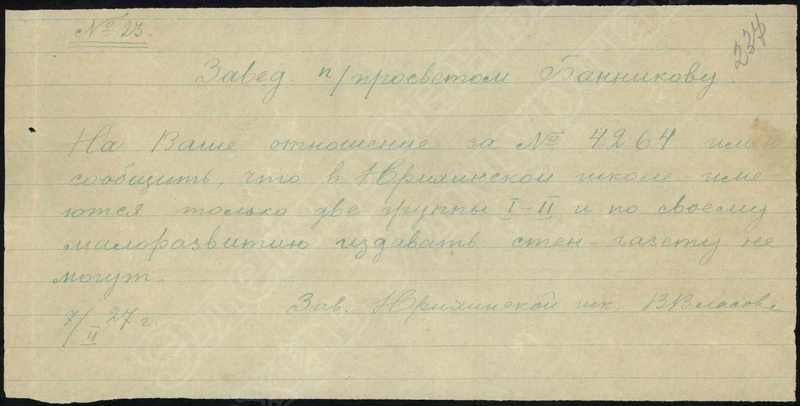 № 23.
234
Завед п/просветом Банникову.
На Ваше отношение за № 4264 имею
сообщить, что в школе име
ются только две группы I-II и по своему
малоразвитию издавать стен-газету не
могут.
7/II 27 г.
Зав. шк. ВВласова